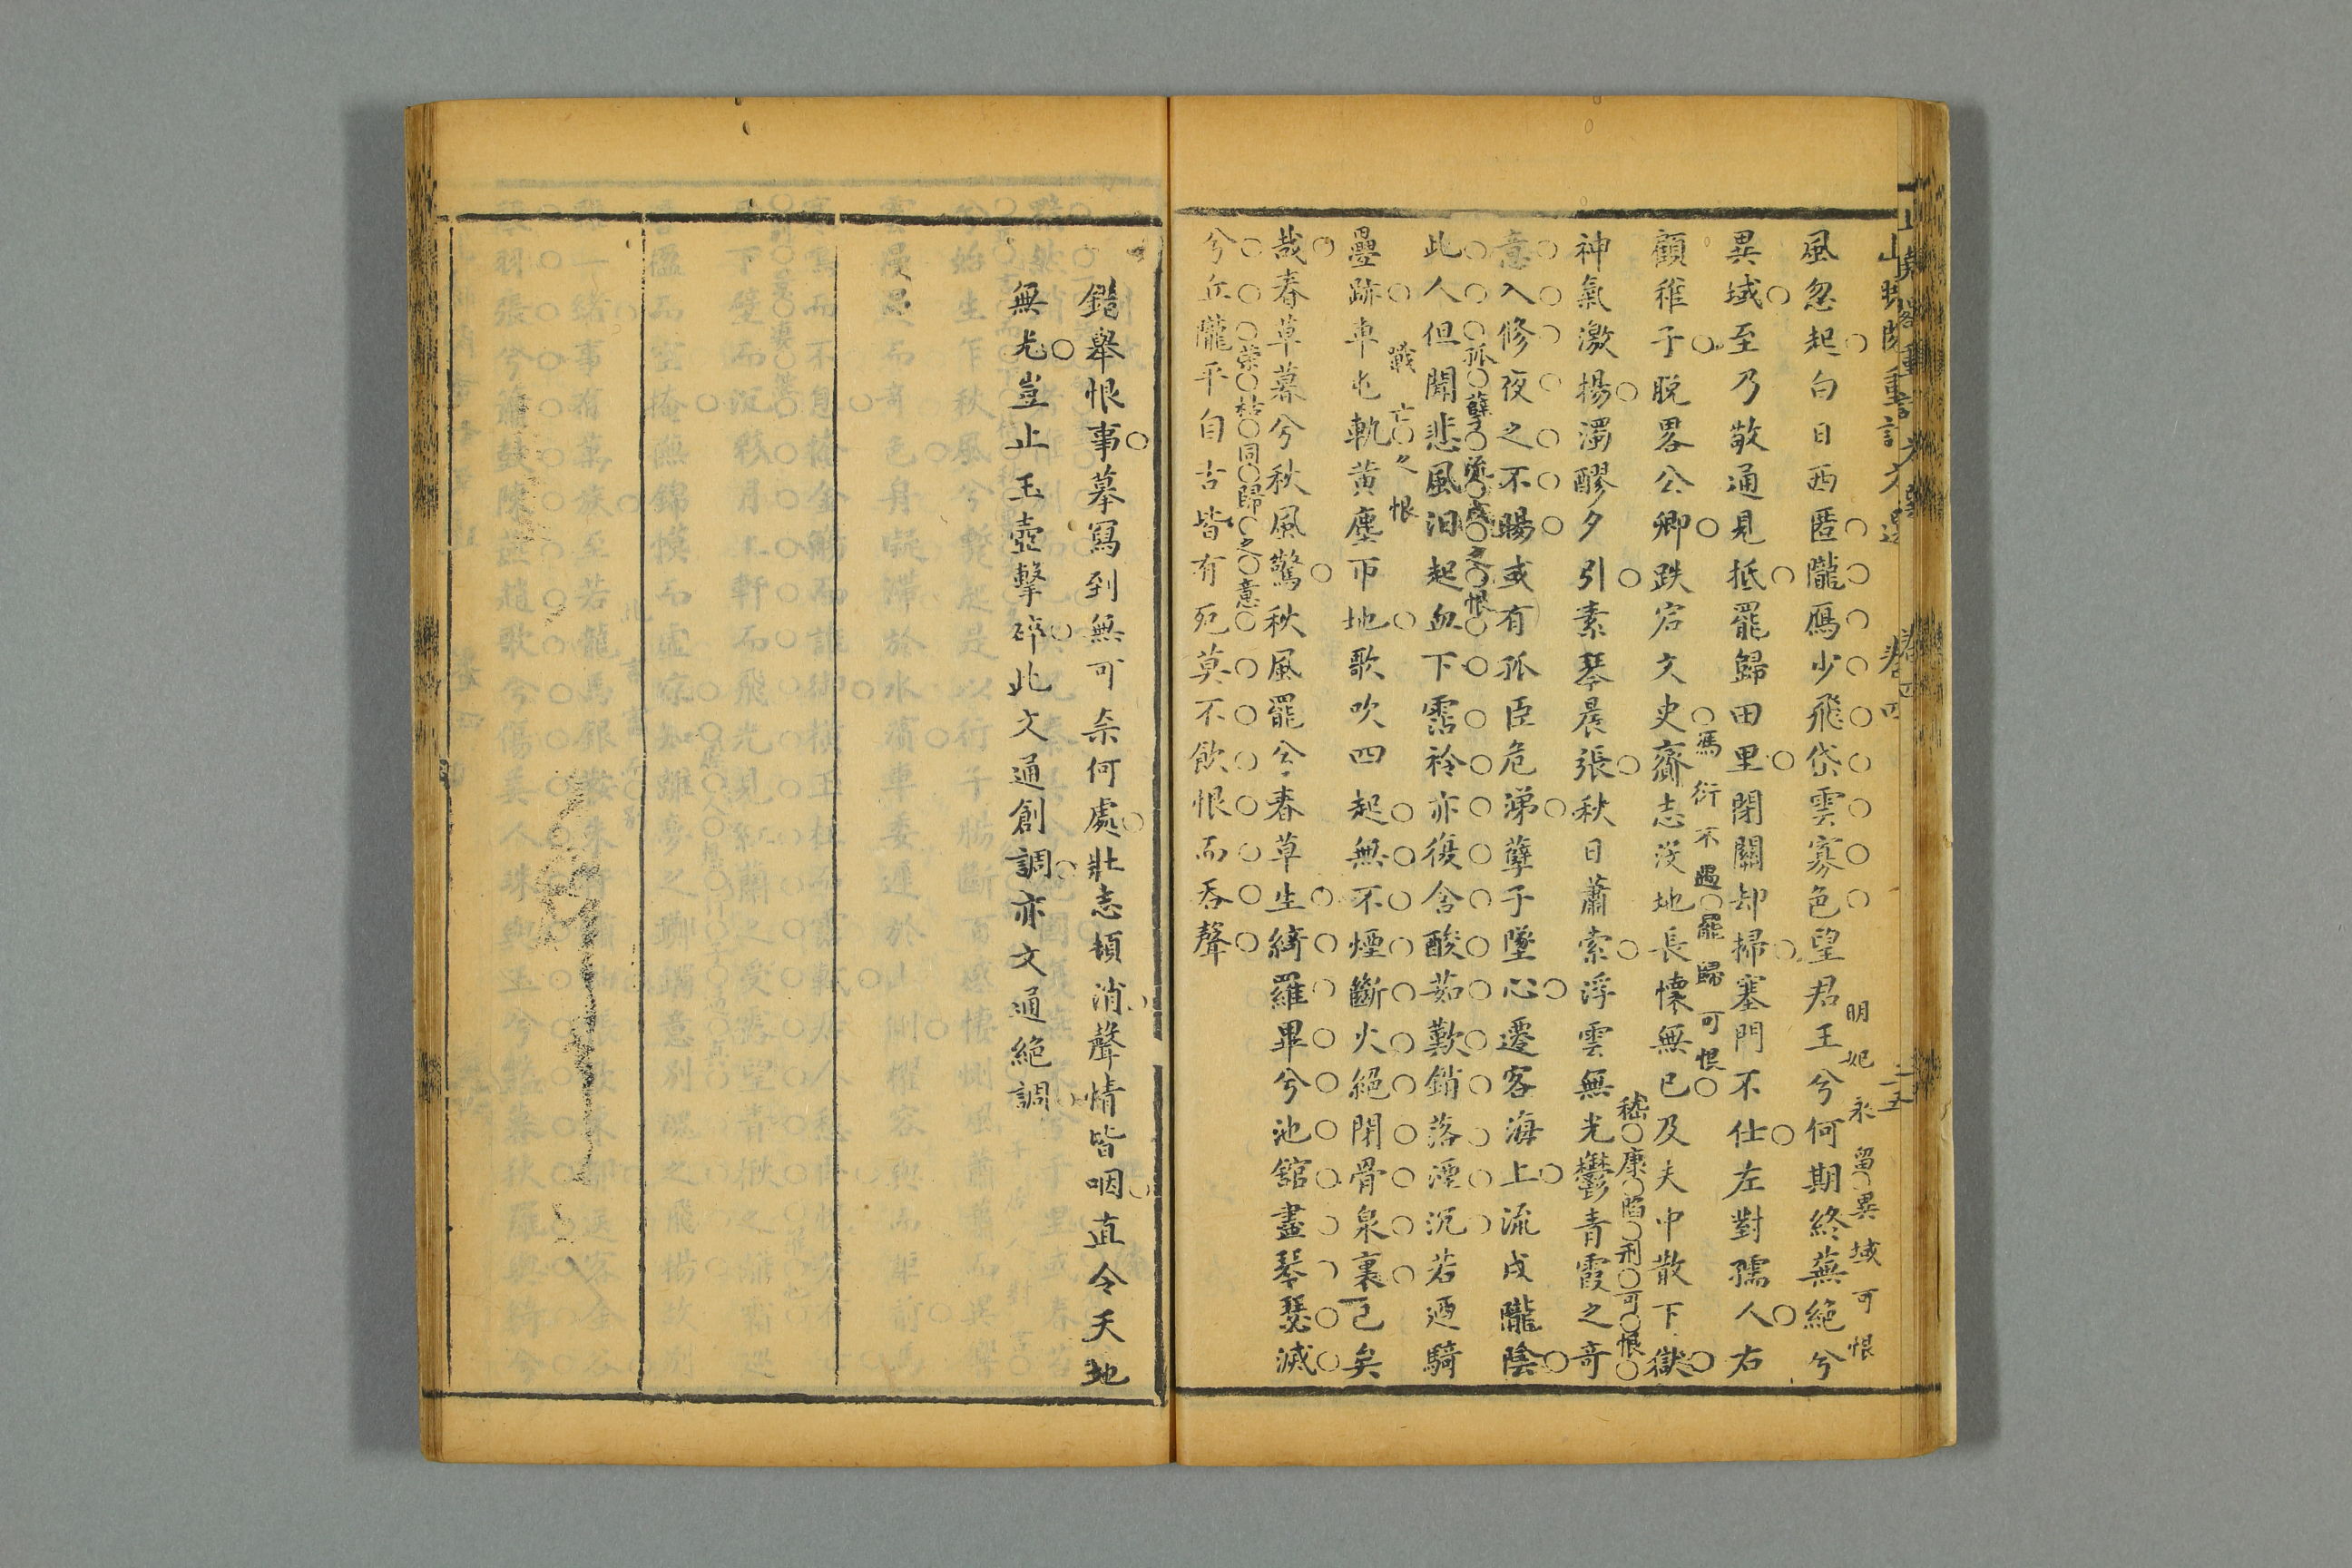 風忽起白日西匿隴鴈少飛岱雲寡色望君王兮何期終蕪絕兮
明妃永留異域可恨
異域至乃敬通見抵罷歸田里閉關却掃塞門不仕左對孺人右
顧稚子脫畧公卿跌宕文史齎志沒地長懷無已及夫中散下獄
馮衍不遇罷歸可恨
神氣激揚濁醪夕引素琴晨張秋日蕭索浮雲無光鬱青霞之奇
嵇康陷刑可恨
意入修夜之不暘或有孤臣危涕孽子墜心遷客海上流戍隴陰
此人但聞悲風汩起血下霑衿亦復含酸茹歎銷落湮沉若迺騎
孤孽流戍之恨
疊跡車屯軌黃塵帀地歌吹四起無不煙斷火絕閉骨泉裏已矣
戰亡之恨
哉春草暮兮秋風驚秋風罷兮春草生綺羅畢兮池舘盡琴瑟滅
兮丘隴平自古皆有死莫不飲恨而吞聲
榮枯同歸之意
鎚舉恨事摹寫到無可柰何處壯志頓消聲情皆咽直令天地
無光豈止玉壺擊碎此文通創調亦文通絕調